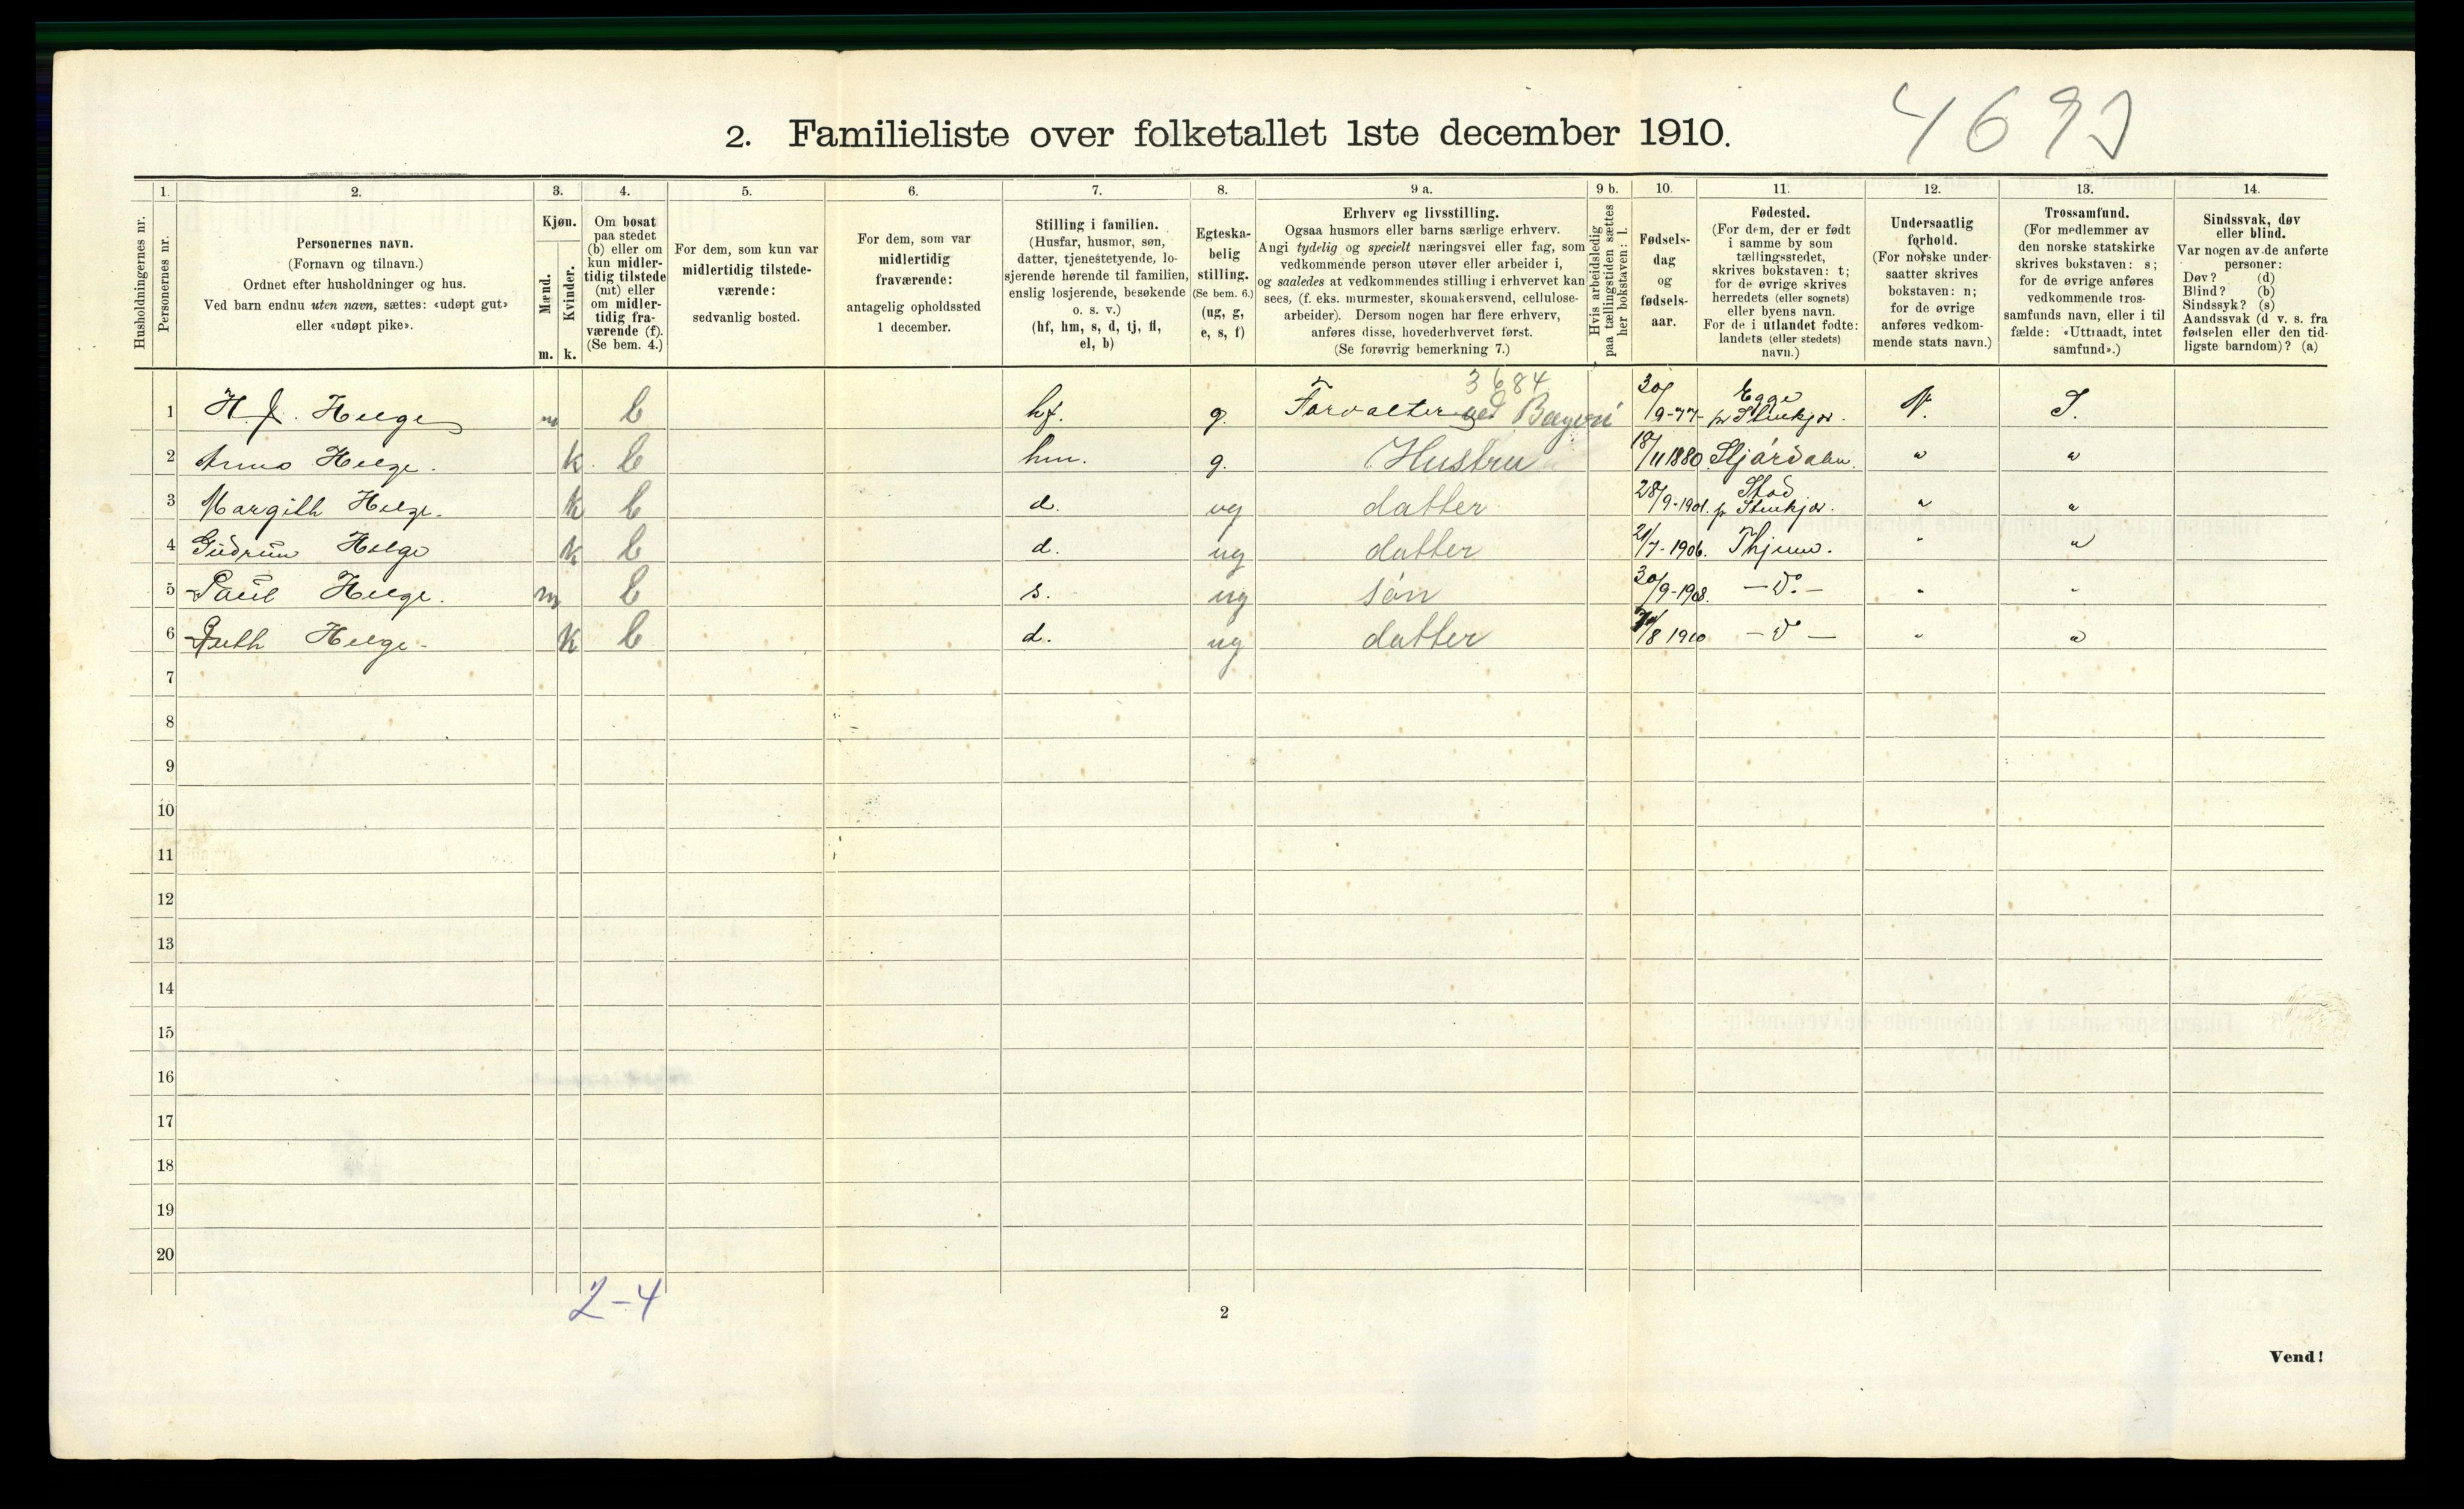 4693
2. Familieliste over folketallet 1ste december 1910.
1. 2. 3. 4. 5. 6. 7. 8. 9 a. 9 b. 10. 11. 12. 13. 14.
Husholdningernes nr.
Personernes nr.
Personernes navn.
(Fornavn og tilnavn.)
Ordnet efter husholdninger og hus.
Ved barn endnu uten navn, sættes: «udøpt gut»
eller «udøpt pike».
Kjøn.
Mænd.
Kvinder.
m. k.
Om bosat
paa stedet
(b) eller om
kun midler-
tidig tilstede
(mt) eller
om midler-
tidig fra-
værende (f).
(Se bem. 4.)
For dem, som kun var
midlertidig tilstede-
værende:
sedvanlig bosted.
For dem, som var
midlertidig
fraværende:
antagelig opholdssted
1 december.
Stilling i familien.
(Husfar, husmor, søn,
datter, tjenestetyende, lo-
sjerende hørende til familien,
enslig losjerende, besøkende
o. s. v.)
(hf, hm, s, d, tj, fl,
el, b)
Egteska-
belig
stilling.
(Se bem. 6.)
(ug, g,
e, s, f)
Erhverv og livsstilling.
Ogsaa husmors eller barns særlige erhverv.
Angi tydelig og specielt næringsvei eller fag, som
vedkommende person utøver eller arbeider i,
og saaledes at vedkommendes stilling i erhvervet kan
sees, (f. eks. murmester, skomakersvend, cellulose-
arbeider). Dersom nogen har flere erhverv,
anføres disse, hovederhvervet først.
(Se forøvrig bemerkning 7.)
Hvis arbeidsledig
paa tællingstiden sættes
her bokstaven: l.
Fødsels-
dag
og
fødsels-
aar.
Fødested.
(For dem, der er født
i samme by som
tællingsstedet,
skrives bokstaven: t;
for de øvrige skrives
herredets (eller sognets)
eller byens navn.
For de i utlandet fødte:
landets (eller stedets)
navn.)
Undersaatlig
forhold.
(For norske under-
saatter skrives
bokstaven: n;
for de øvrige
anføres vedkom-
mende stats navn.)
Trossamfund.
(For medlemmer av
den norske statskirke
skrives bokstaven: s;
for de øvrige anføres
vedkommende tros-
samfunds navn, eller i til
fælde: «Uttraadt, intet
samfund».)
Sindssvak, døv
eller blind.
Var nogen av de anførte
personer:
Døv? (d)
Blind? (b)
Sindssyk? (s)
Aandssvak (d v. s. fra
fødselen eller den tid-
ligste barndom)? (a)
3684
1 H. J. Helge m b hf. g. Forvalter ved Bageri 30/9-77- Egge pr Stenkjær. N. S.
2 Anna Helge. k. b hm. g. Hustru 18/11 1880 Stjørdalen. " "
3 Margith Helge. k b d. ug datter 28/9-1901. Stod pr Stenkjær. " "
4 Gudrun Helge k b d. ug datter 21/7-1906. Thjem. " "
5 Paul Helge. m b s. ug søn 30/9-1908. — do. — " "
6 Ruth Helge. k b d. ug datter /8 1910 — do — " "
7
8
9
10
11
12
13
14
15
16
17
18
19
20
2-4
2
Vend!